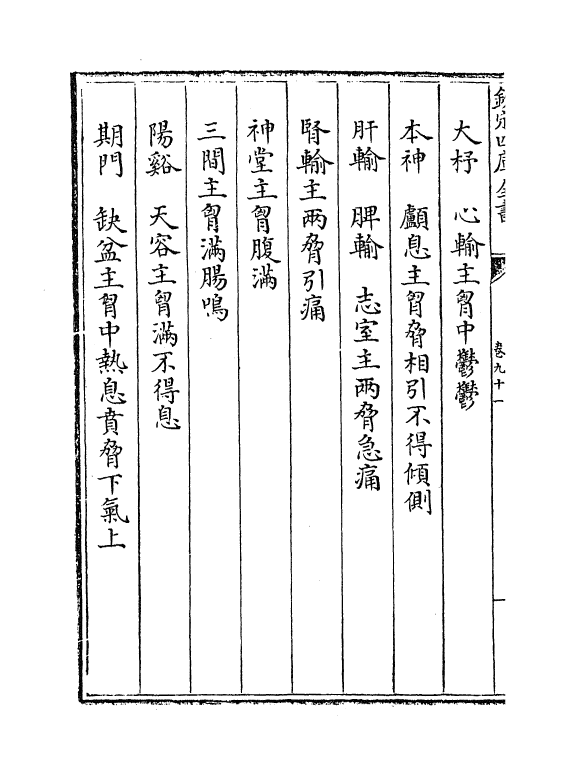 欽定四庫全書
卷九十一
大杼　心輸主胷中鬱鬱
本神　顱息主胷脅相引不得傾側
肝輸　脾輸　志室主兩脅急痛
腎輸主兩脅引痛
神堂主胷腹滿
三間主胷滿腸鳴
陽谿　天容主胷滿不得息
期門　缺盆主胷中熱息賁脅下氣上